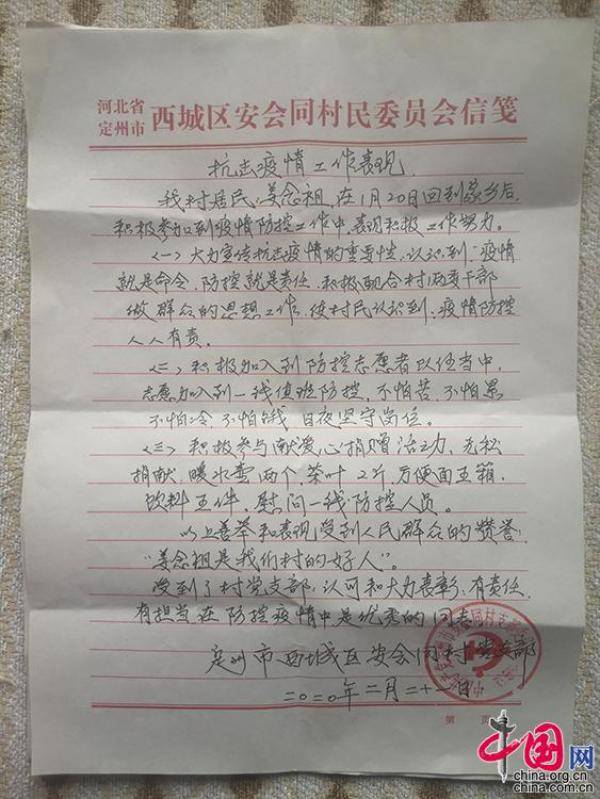 河北省
定州市
西城区安会同村民委员会信笺
抗击疫情工作表现
我村居民:姜念祖,在1月20日回到家乡后,
积极参加到疫情防控工作中,表现积极工作努力。
(一)大力宣传抗击疫情的重要性,认识到:疫情
就是命令,防控就是责任,积极配合村两委干部
做群众的思想工作,使村民认识到,疫情防控
人人有责。
(二)积极加入到防控志愿者队伍当中,
志愿加入到一线值班防控,不怕苦,不怕累
不怕冷,不怕饿,日夜坚守岗位。
(三)积极参与献爱心捐赠活动,无私
捐献,暖水壶两个,茶叶2斤,方便面五箱,
饮料五件,慰问一线防控人员。
以上善举和表现受到人民群众的赞誉:
“姜念祖是我们村的好人”。
受到了村党支部,认可和大力表彰,有责任,
有担当在防控疫情中是优秀的同志
定州市西城区安会同村党支部
二〇二〇年二月二十一日
第 页
中国网
china.org.cn
china.com.cn